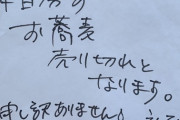 本日分の
お蕎麦
売り切れと
なります。
申し訳ありません!